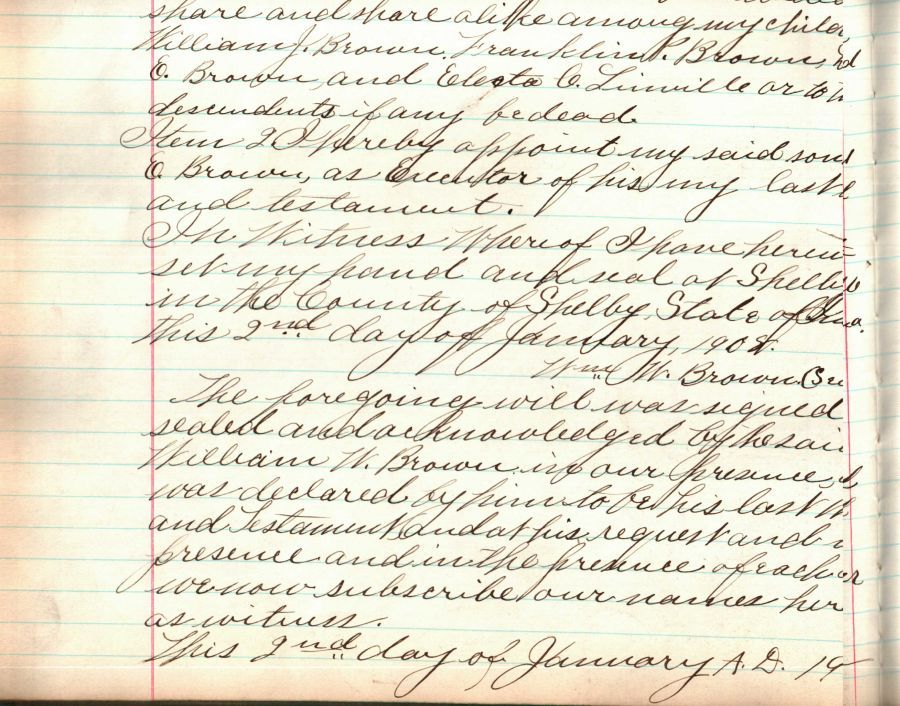 share and share alike among my child
William J. Brown, Franklin P. Brown,
O. Brown, and Electa C. Linville or to
descendents if any be dead.
Item 2 I hereby appoint my said son
O Brown, as Executor of his my last
and testament.
In Witness Whereof I have herein=
set my hand and seal at Shelby
in the County of Shelby, State of
this 2nd day of January, 1902.
Wm W. Brown. (Se
The foregoing will was signed
sealed and acknowledged by the said
William W. Brown in our presence,
was declared by him to be his last
and Testament and at his request and
presence and in the presence of each
we now subscribe our names her
as witness.
This 2nd day of January A.D. 19